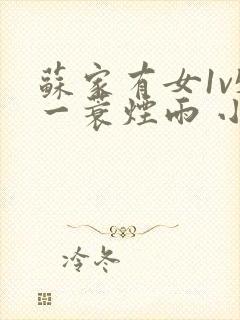 蘇家有女1v
一蓑煙雨 小
冷冬